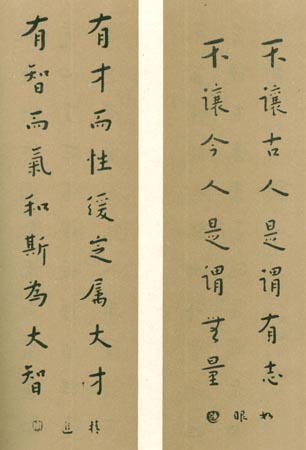 不讓古人是謂有志
不讓今人是謂無量
如眼
有才而性緩定属大才
有智而氣和斯為大智